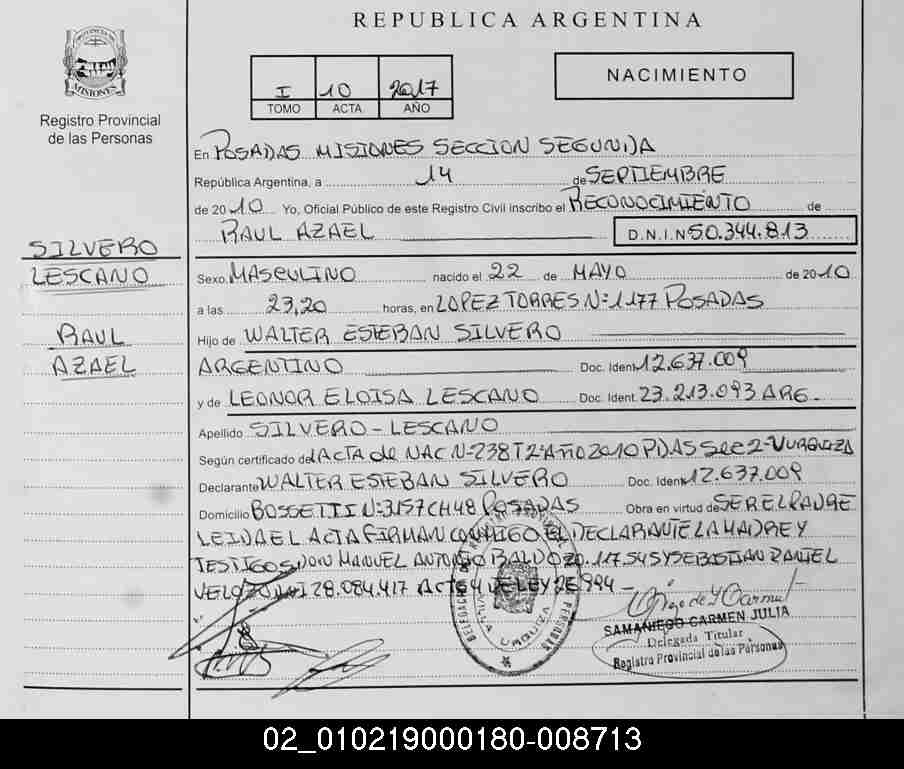 REPUBLICA ARGENTINA
PROVINCIA DE
MISIONES
Registro Provincial
de las Personas
I 10 2017
TOMO ACTA AÑO
NACIMIENTO
En POSADAS MISIONES SECCION SEGUNDA
República Argentina, a 14 de SEPTIEMBRE
de 2010 Yo, Oficial Público de este Registro Civil inscribo el RECONOCIMIENTO de
RAUL AZAEL D.N.I.Nº 50.344.813
SILVERO
LESCANO
RAUL
AZAEL
Sexo MASCULINO nacido el 22 de MAYO de 2010
a las 23,20 horas, en LOPEZ TORRES Nº 1177 POSADAS
Hijo de WALTER ESTEBAN SILVERO
ARGENTINO Doc. Ident. 12.637.009
y de LEONOR ELOISA LESCANO Doc. Ident. 23.213.093 ARG.
Apellido SILVERO - LESCANO
Según certificado del ACTA de NAC Nº 238 T 2º Año 2010 PDAS Sec 2º V URQUIZA
Declarante WALTER ESTEBAN SILVERO Doc. Ident. 12.637.009
Domicilio BOSSETTI Nº 3157 CH 48 POSADAS Obra en virtud de SER EL PADRE
LEIDA EL ACTA FIRMAN CONMIGO EL DECLARANTE LA MADRE Y
TESTIGOS DON MANUEL ANTONIO 117.545 Y SEBASTIAN DANIEL
28.084.417
SAMANIEGO CARMEN JULIA
Delegada Titular
Registro Provincial de las Personas
02_010219000180-008713